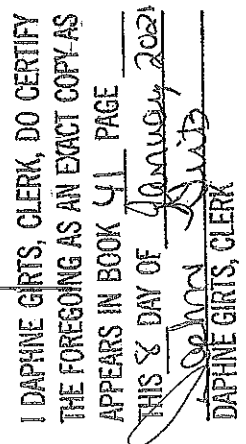 I DAPHNE GIRTS, CLERK, DO CERTIFY
THE FOREGOING AS AN EXACT COPY AS
APPEARS IN BOOK 41 PAGE
THIS 8 DAY OF January, 2021
Daphne Girts
DAPHNE GIRTS, CLERK